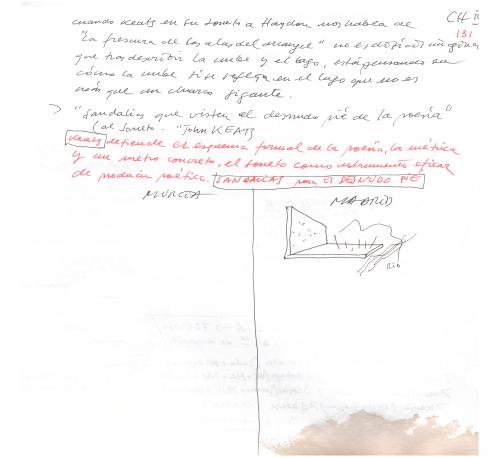 cuando Keats en su soneto a Haydon nos habla de
CH
131
"La frescura de las alas del arcángel" no es
que tras describir la nube y el lago, está pensando en
cómo la nube se refleja en el lago que no es
más que un charco gigante.
> "Sandalias que visten el desnudo pié de la poesía"
(al Soneto. "John KEATS
Keats defiende el esquema formal de la poesía, la métrica
y un metro concreto, el soneto como instrumento eficaz
de producción poética. SANDALIAS para El DESNUDO PIÉ
MURCIA
MADRID
Río